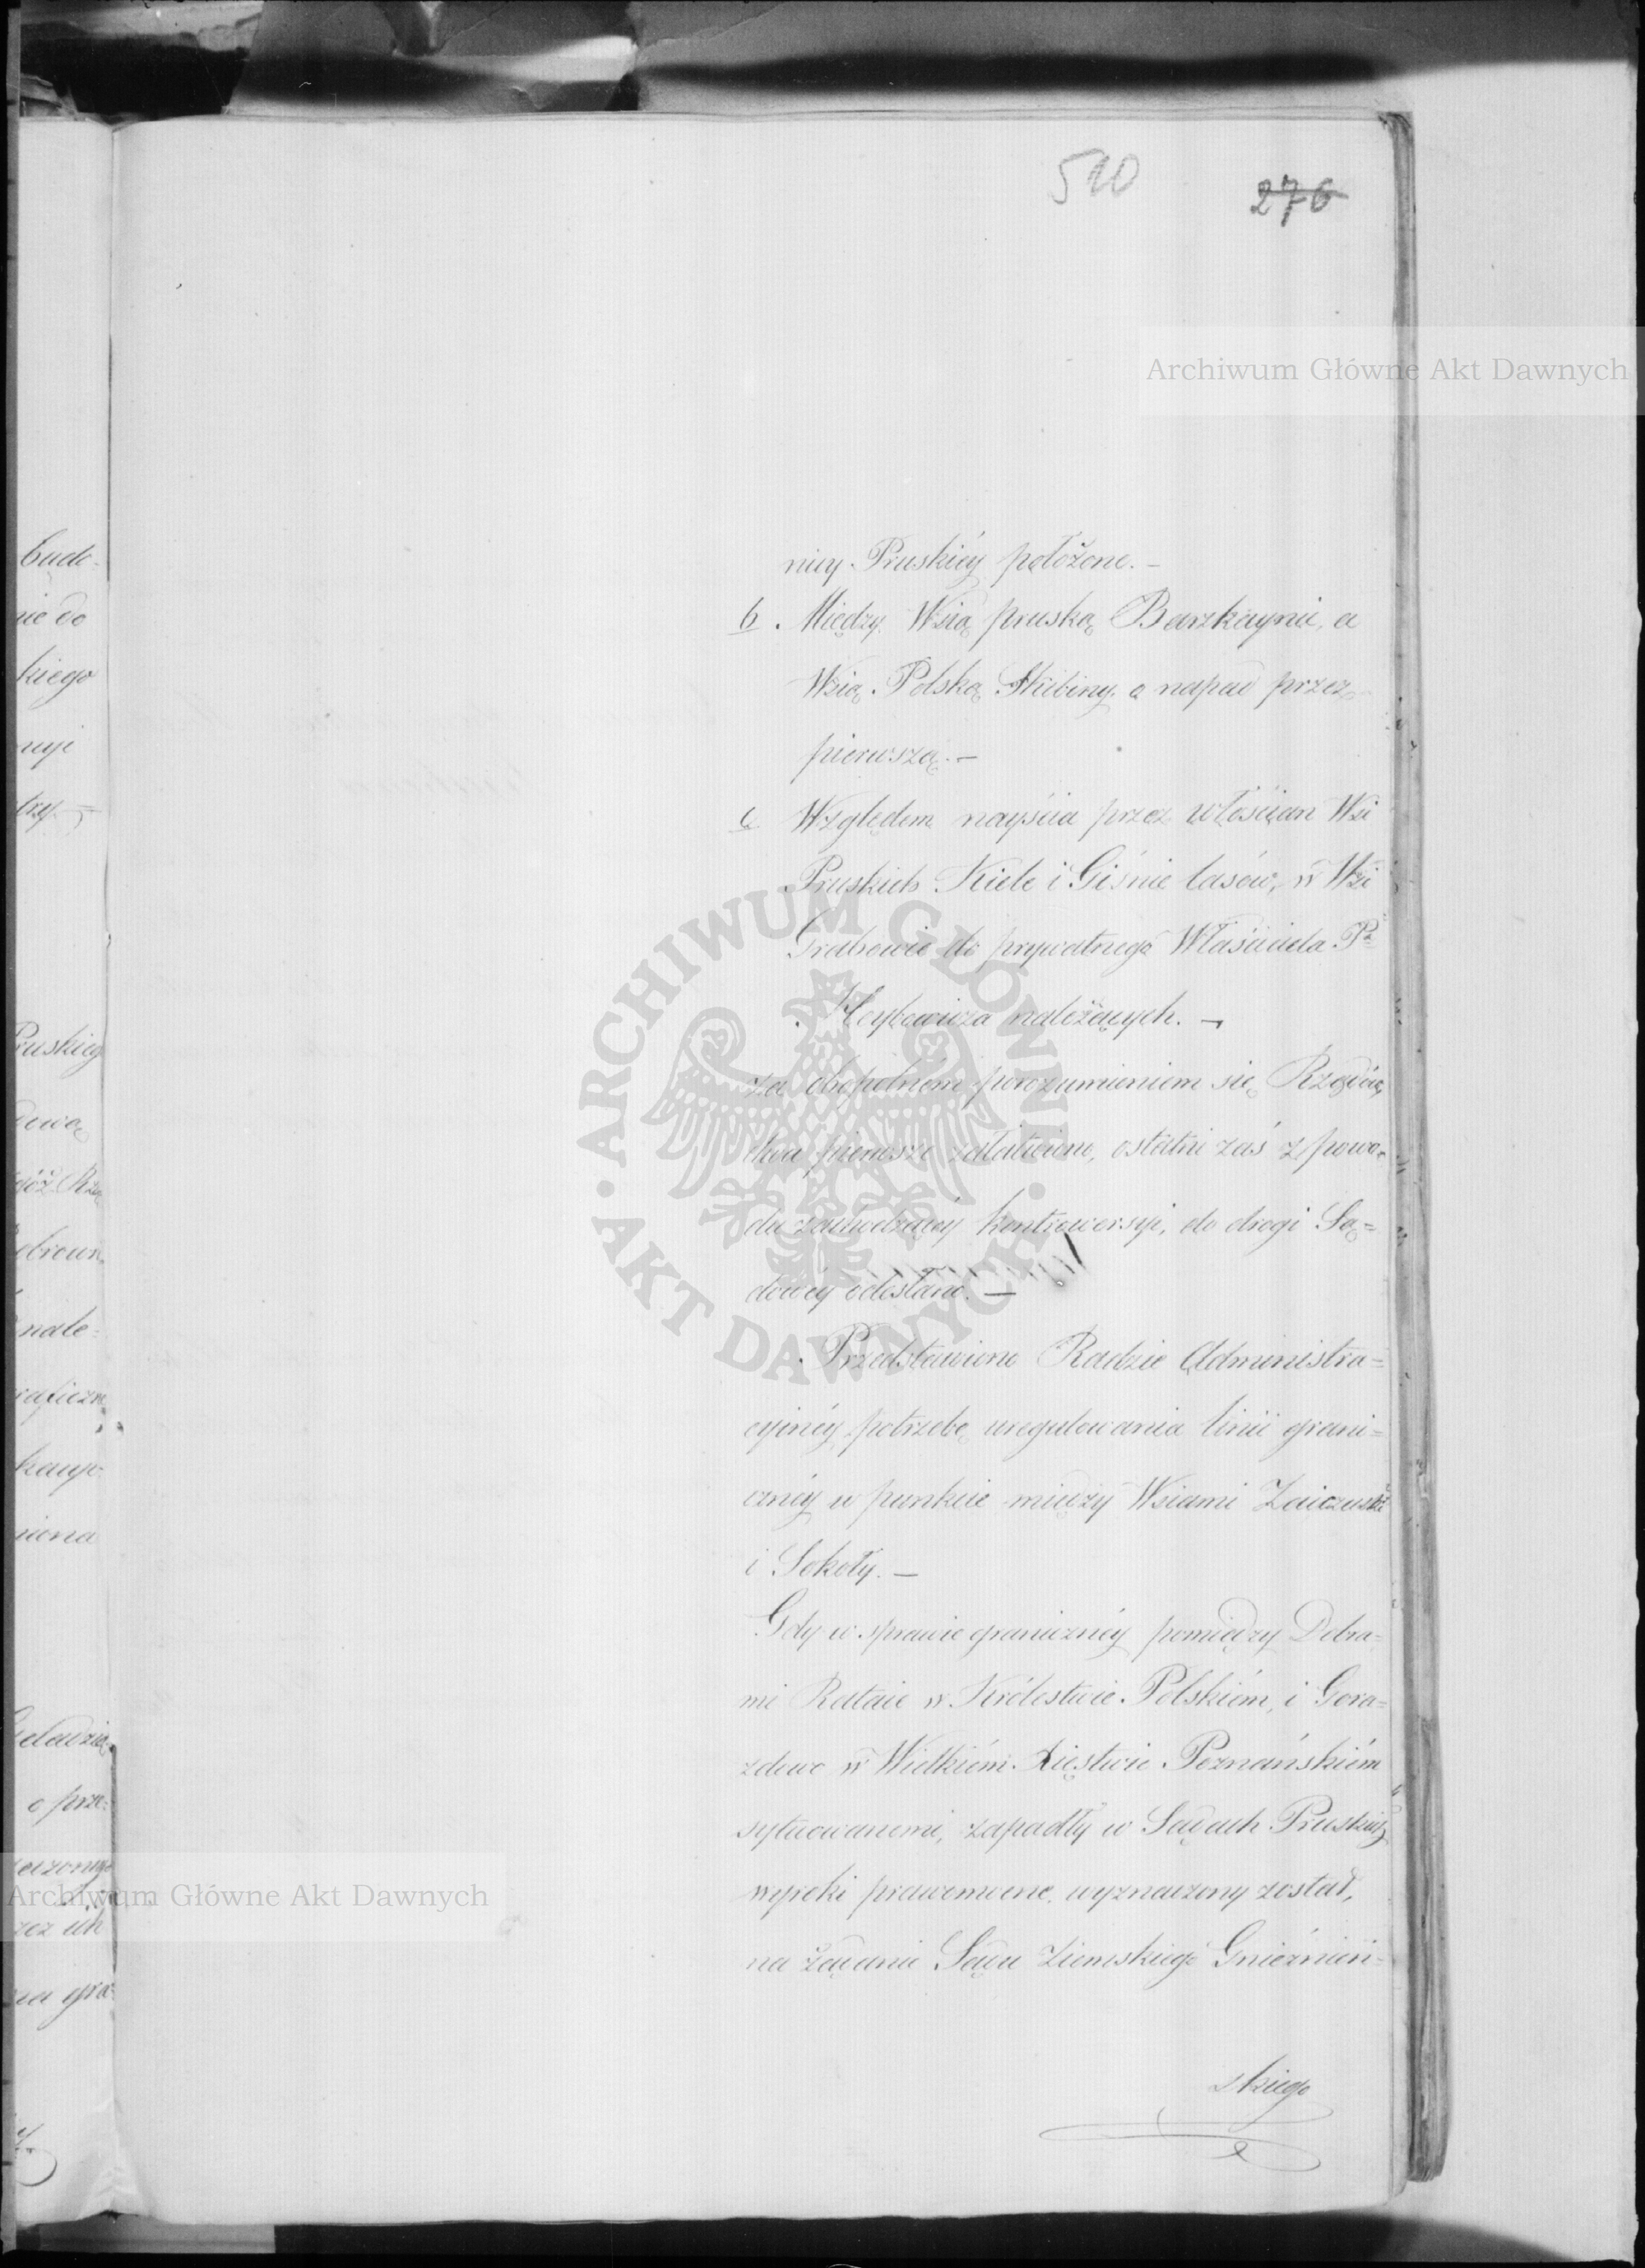 510
276
Archiwum Główne Akt Dawnych
nicy Pruskiéy położone. –
b. Między Wsią pruską Barzkaynie, a
Wsią Polską Skibiny o napad przez
pierwszą. –
c. Względem nayścia przez włościan Wsi
Pruskich Kiele i Giśnie lasów, w Wsi
Grabowie do prywatnego Właściciela Pa
należących. –
za obopólném porozumieniem się Rządów,
dwa pierwsze załatwiono, ostatni zaś z powo=
du zachodzącéy kontrowersyi, do drogi Są=
dowéy odesłano. –
Przedstawiono Radzie Administra=
cyinéy potrzebę uregulowania linii grani=
cznéy w punkcie między Wsiami Zaiczuski
i Sokoły. –
Gdy w sprawie granicznéy pomiędzy Dobra=
mi Rataie w Królestwie Polskiém, i Gora=
zdowo w Wielkiém Xięstwie Poznańskiém
sytuowanemi, zapadły w Sądach Pruskich
wyroki prawomocne, wyznaczony został,
na żądanie Sądu Ziemskiego Gnieźnień=
skiego
budo-
nie do
kiego
Pruskieg
nale=
o prze=
na gra=
Archiwum Główne Akt Dawnych
ARCHIWUM GŁÓWNE · AKT DAWNYCH ·